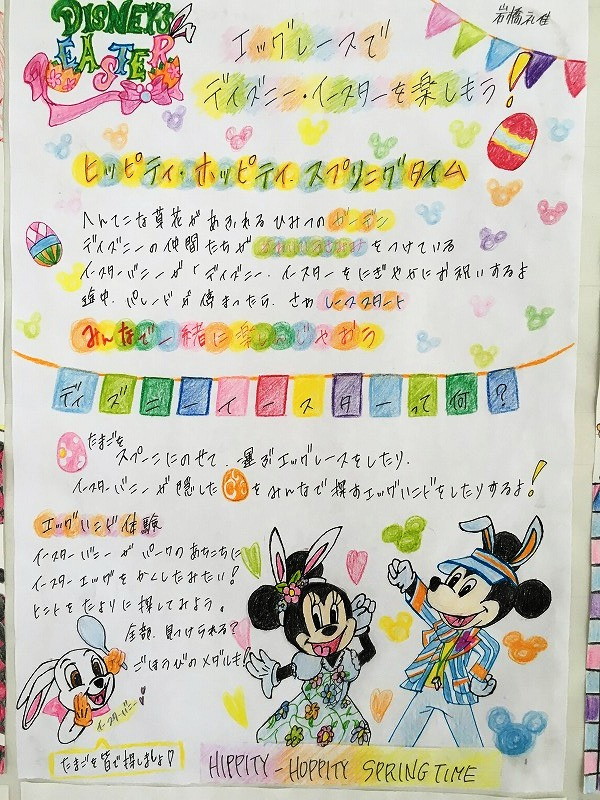 岩橋礼佳
DISNEY'S
EASTER
エッグレースで
ディズニー・イースターを楽しもう!
ヒッピティ・ホッピティ・スプリングタイム
へんてこな草花があふれるひみつのガーデン
ディズニーの仲間たちが をつけている
イースターバニーが「ディズニー・イースターをにぎやかにお祝いするよ
途中、パレードが停まったら、さぁレーススタート
みんなで一緒に楽しんじゃおう
ディズニーイースターって何?
たまごを
スプーンにのせて、運ぶエッグレースをしたり、
イースターバニーが隠した をみんなで探すエッグハントをしたりするよ!
エッグハント体験
イースターバニーがパークのあちこちに
イースターエッグをかくしたみたい!
ヒントをたよりに探してみよう。
全部、見つけられる?
ごほうびのメダルも
イースターバニー
たまごを皆で探しましょ!
HIPPITY-HOPPITY SPRINGTIME